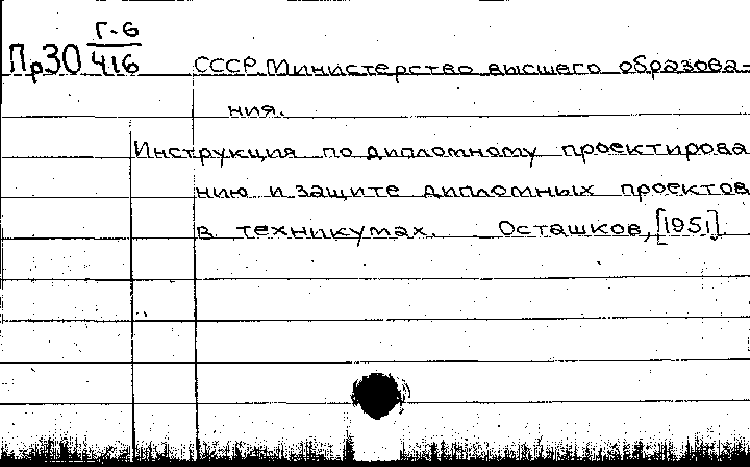 Г-6
Пр30 416
СССР. Министерство высшего образова-
ния.
Инструкция по дипломному проектирова
нию и защите дипломных проектов
в техникумах. Осташков, [1951].